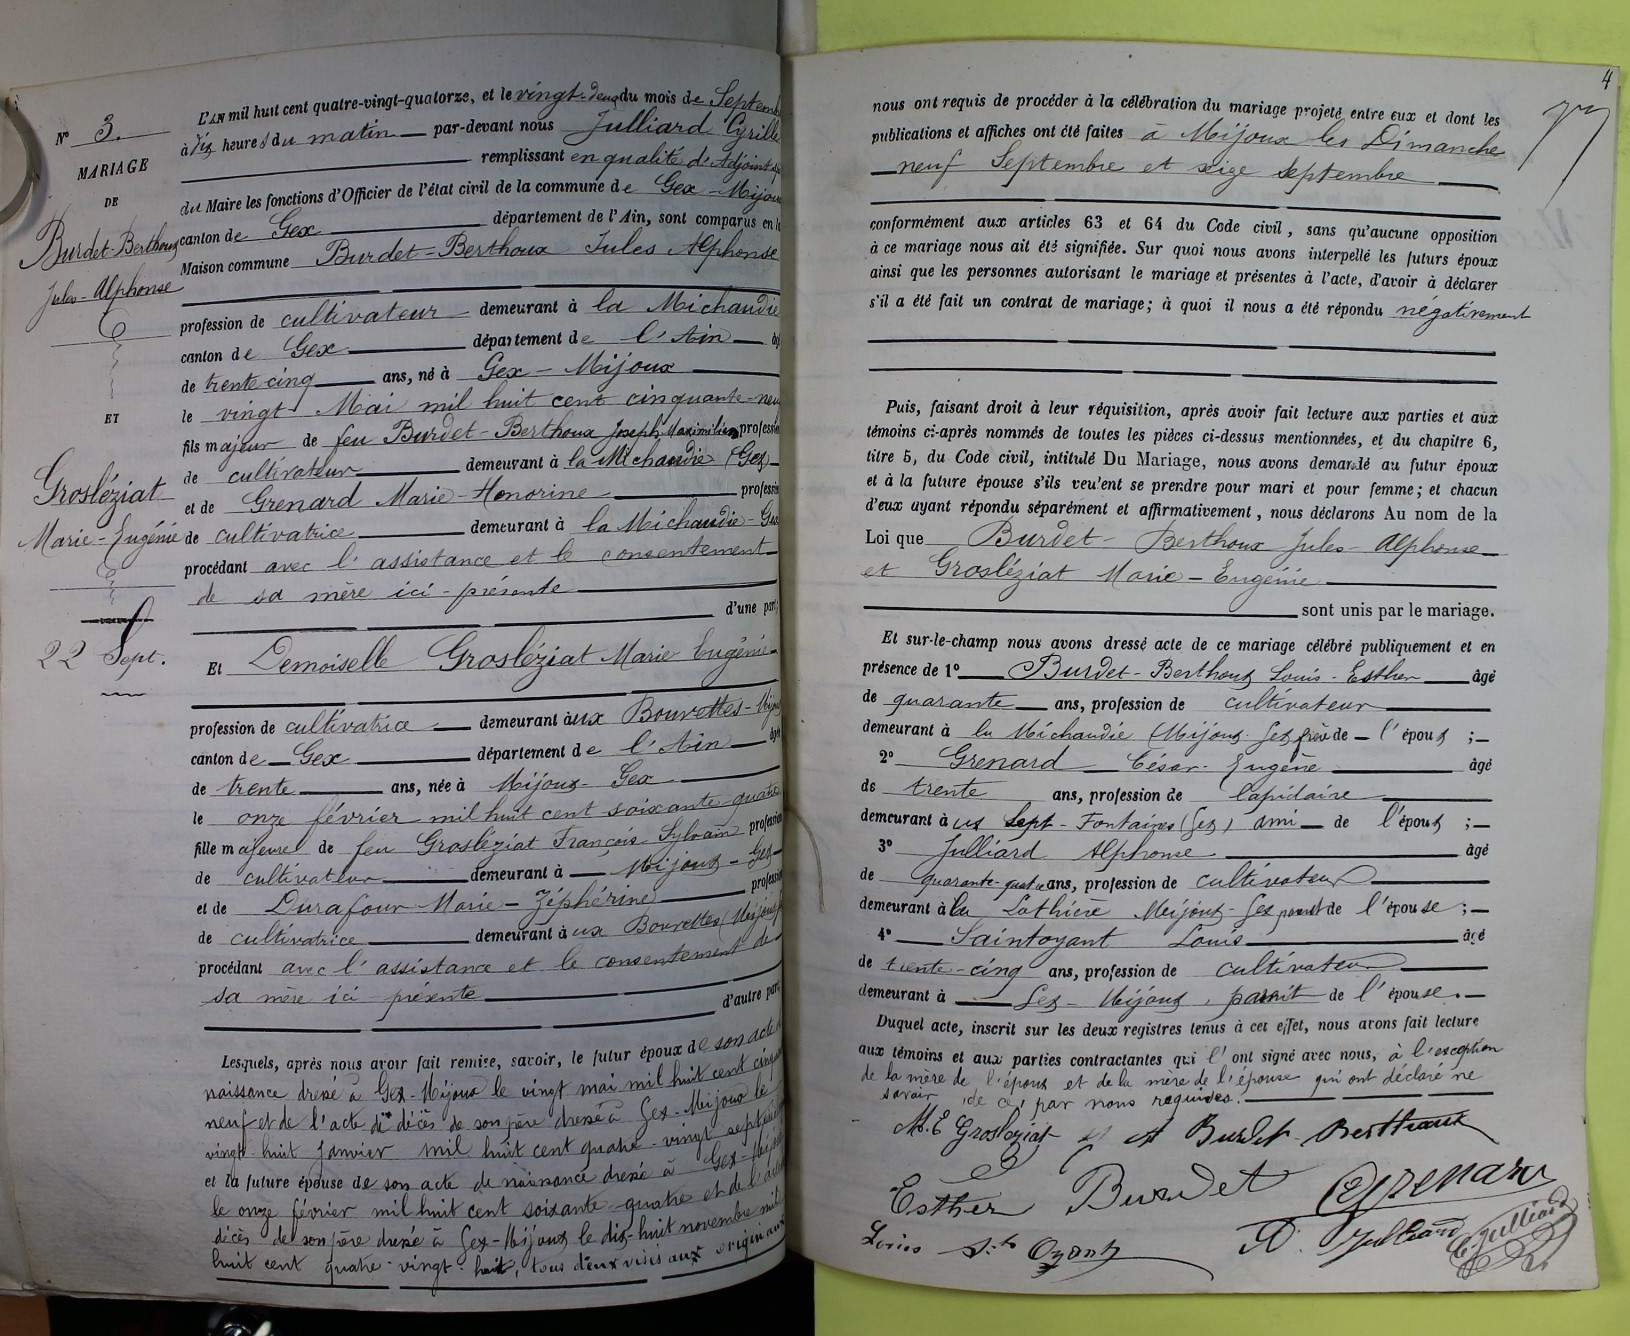 N° 3.
MARIAGE
DE
Burdet-Berthoux
Jules-Alphonse
ET
Grosléziat
Marie-Eugénie
22 Sept.
L'AN mil huit cent quatre-vingt-quatorze, et le vingt-deux du mois de Septem
à dix heures du matin par-devant nous Julliard Cyrille
remplissant en qualité d'Adjoint
du Maire les fonctions d'Officier de l'état civil de la commune de Gex-Mijoux
canton de Gex département de l'Ain, sont comparus en la
Maison commune Burdet-Berthoux Jules Alphonse
profession de cultivateur demeurant à la Michaudie
canton de Gex département de l'Ain âgé
de trente-cinq ans, né à Gex-Mijoux
le vingt Mai mil huit cent cinquante-neuf
fils majeur de feu Burdet-Berthoux Joseph Maximilien profession
de cultivateur demeurant à la Michaudie (Gex)
et de Grenard Marie-Honorine profession
de cultivatrice demeurant à la Michaudie-Gex
procédant avec l'assistance et le consentement
de sa mère ici-présente
d'une part;
Et Demoiselle Grosléziat Marie Eugénie
profession de cultivatrice demeurant aux Bourettes-Mijoux
canton de Gex département de l'Ain âgée
de trente ans, née à Mijoux-Gex
le onze février mil huit cent soixante-quatre
fille majeure de feu Grosléziat François-Sylvain profession
de cultivateur demeurant à Mijoux-Gex
et de Durafour Marie-Zéphérine profession
de cultivatrice demeurant aux Bourettes (Mijoux
procédant avec l'assistance et le consentement de
sa mère ici présente
d'autre part.
Lesquels, après nous avoir fait remise, savoir, le futur époux de son acte de
naissance dressé à Gex-Mijoux le vingt mai mil huit cent cinquante
neuf et de l'acte de décès de son père dressé à Gex-Mijoux le
vingt-huit janvier mil huit cent quatre-vingt-sept
et la future épouse de son acte de naissance dressé à Gex-Mijoux
le onze février mil huit cent soixante-quatre et de l'acte de
décès de son père dressé à Gex-Mijoux le dix-huit novembre mil
huit cent quatre-vingt-huit, tous deux visés aux originaux
4
nous ont requis de procéder à la célébration du mariage projeté entre eux et dont les
publications et affiches ont été faites à Mijoux les Dimanche
neuf Septembre et seize septembre
conformément aux articles 63 et 64 du Code civil, sans qu'aucune opposition
à ce mariage nous ait été signifiée. Sur quoi nous avons interpellé les futurs époux
ainsi que les personnes autorisant le mariage et présentes à l'acte, d'avoir à déclarer
s'il a été fait un contrat de mariage; à quoi il nous a été répondu négativement
Puis, faisant droit à leur réquisition, après avoir fait lecture aux parties et aux
témoins ci-après nommés de toutes les pièces ci-dessus mentionnées, et du chapitre 6,
titre 5, du Code civil, intitulé Du Mariage, nous avons demandé au futur époux
et à la future épouse s'ils veulent se prendre pour mari et pour femme; et chacun
d'eux ayant répondu séparément et affirmativement, nous déclarons Au nom de la
Loi que Burdet-Berthoux Jules-Alphonse
et Grosléziat Marie-Eugénie
sont unis par le mariage.
Et sur-le-champ nous avons dressé acte de ce mariage célébré publiquement et en
présence de 1° Burdet-Berthoux Louis-Esther âgé
de quarante ans, profession de cultivateur
demeurant à la Michaudie (Mijoux-Gex frère de l'époux ;
2° Grenard César-Eugène âgé
de trente ans, profession de lapidaire
demeurant aux Sept-Fontaines (Gex) ami de l'époux ;
3° Julliard Alphonse âgé
de quarante-quatre ans, profession de cultivateur
demeurant à la Lathière Mijoux-Gex parent de l'épouse ;
4° Saintoyant Louis âgé
de trente-cinq ans, profession de cultivateur
demeurant à Gex-Mijoux, parent de l'épouse.
Duquel acte, inscrit sur les deux registres tenus à cet effet, nous avons fait lecture
aux témoins et aux parties contractantes qui l'ont signé avec nous, à l'exception
de la mère de l'époux et de la mère de l'épouse qui ont déclaré ne
savoir de ce par nous requises.
M. E Grosléziat A Burdet-Berthoux
Esther Burdet C E Grenard
Louis St Oyant A. Julliard C. Julliard